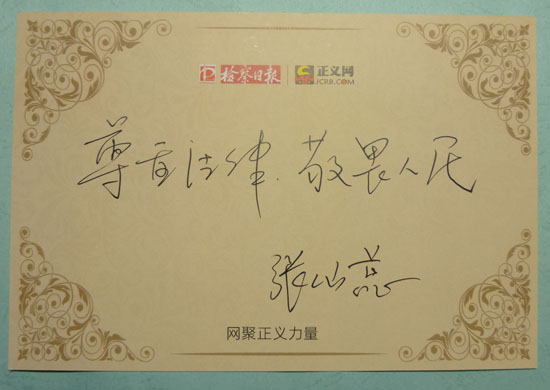 检察日报 正义网
JCRB.COM
尊重法律.敬畏人民
张
网聚正义力量